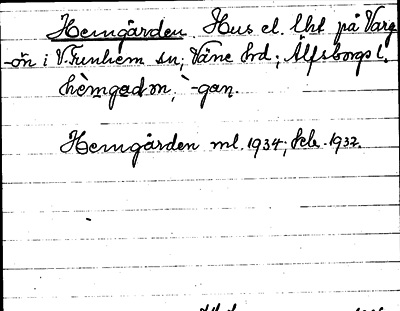 Hemgården. Hus el. lht på Varg
-ön i V. Tunhem sn; Väne hd; Älfsborgs l.
hèmgadon, `-gan.
Hemgården ml. 1934; feb. 1932.